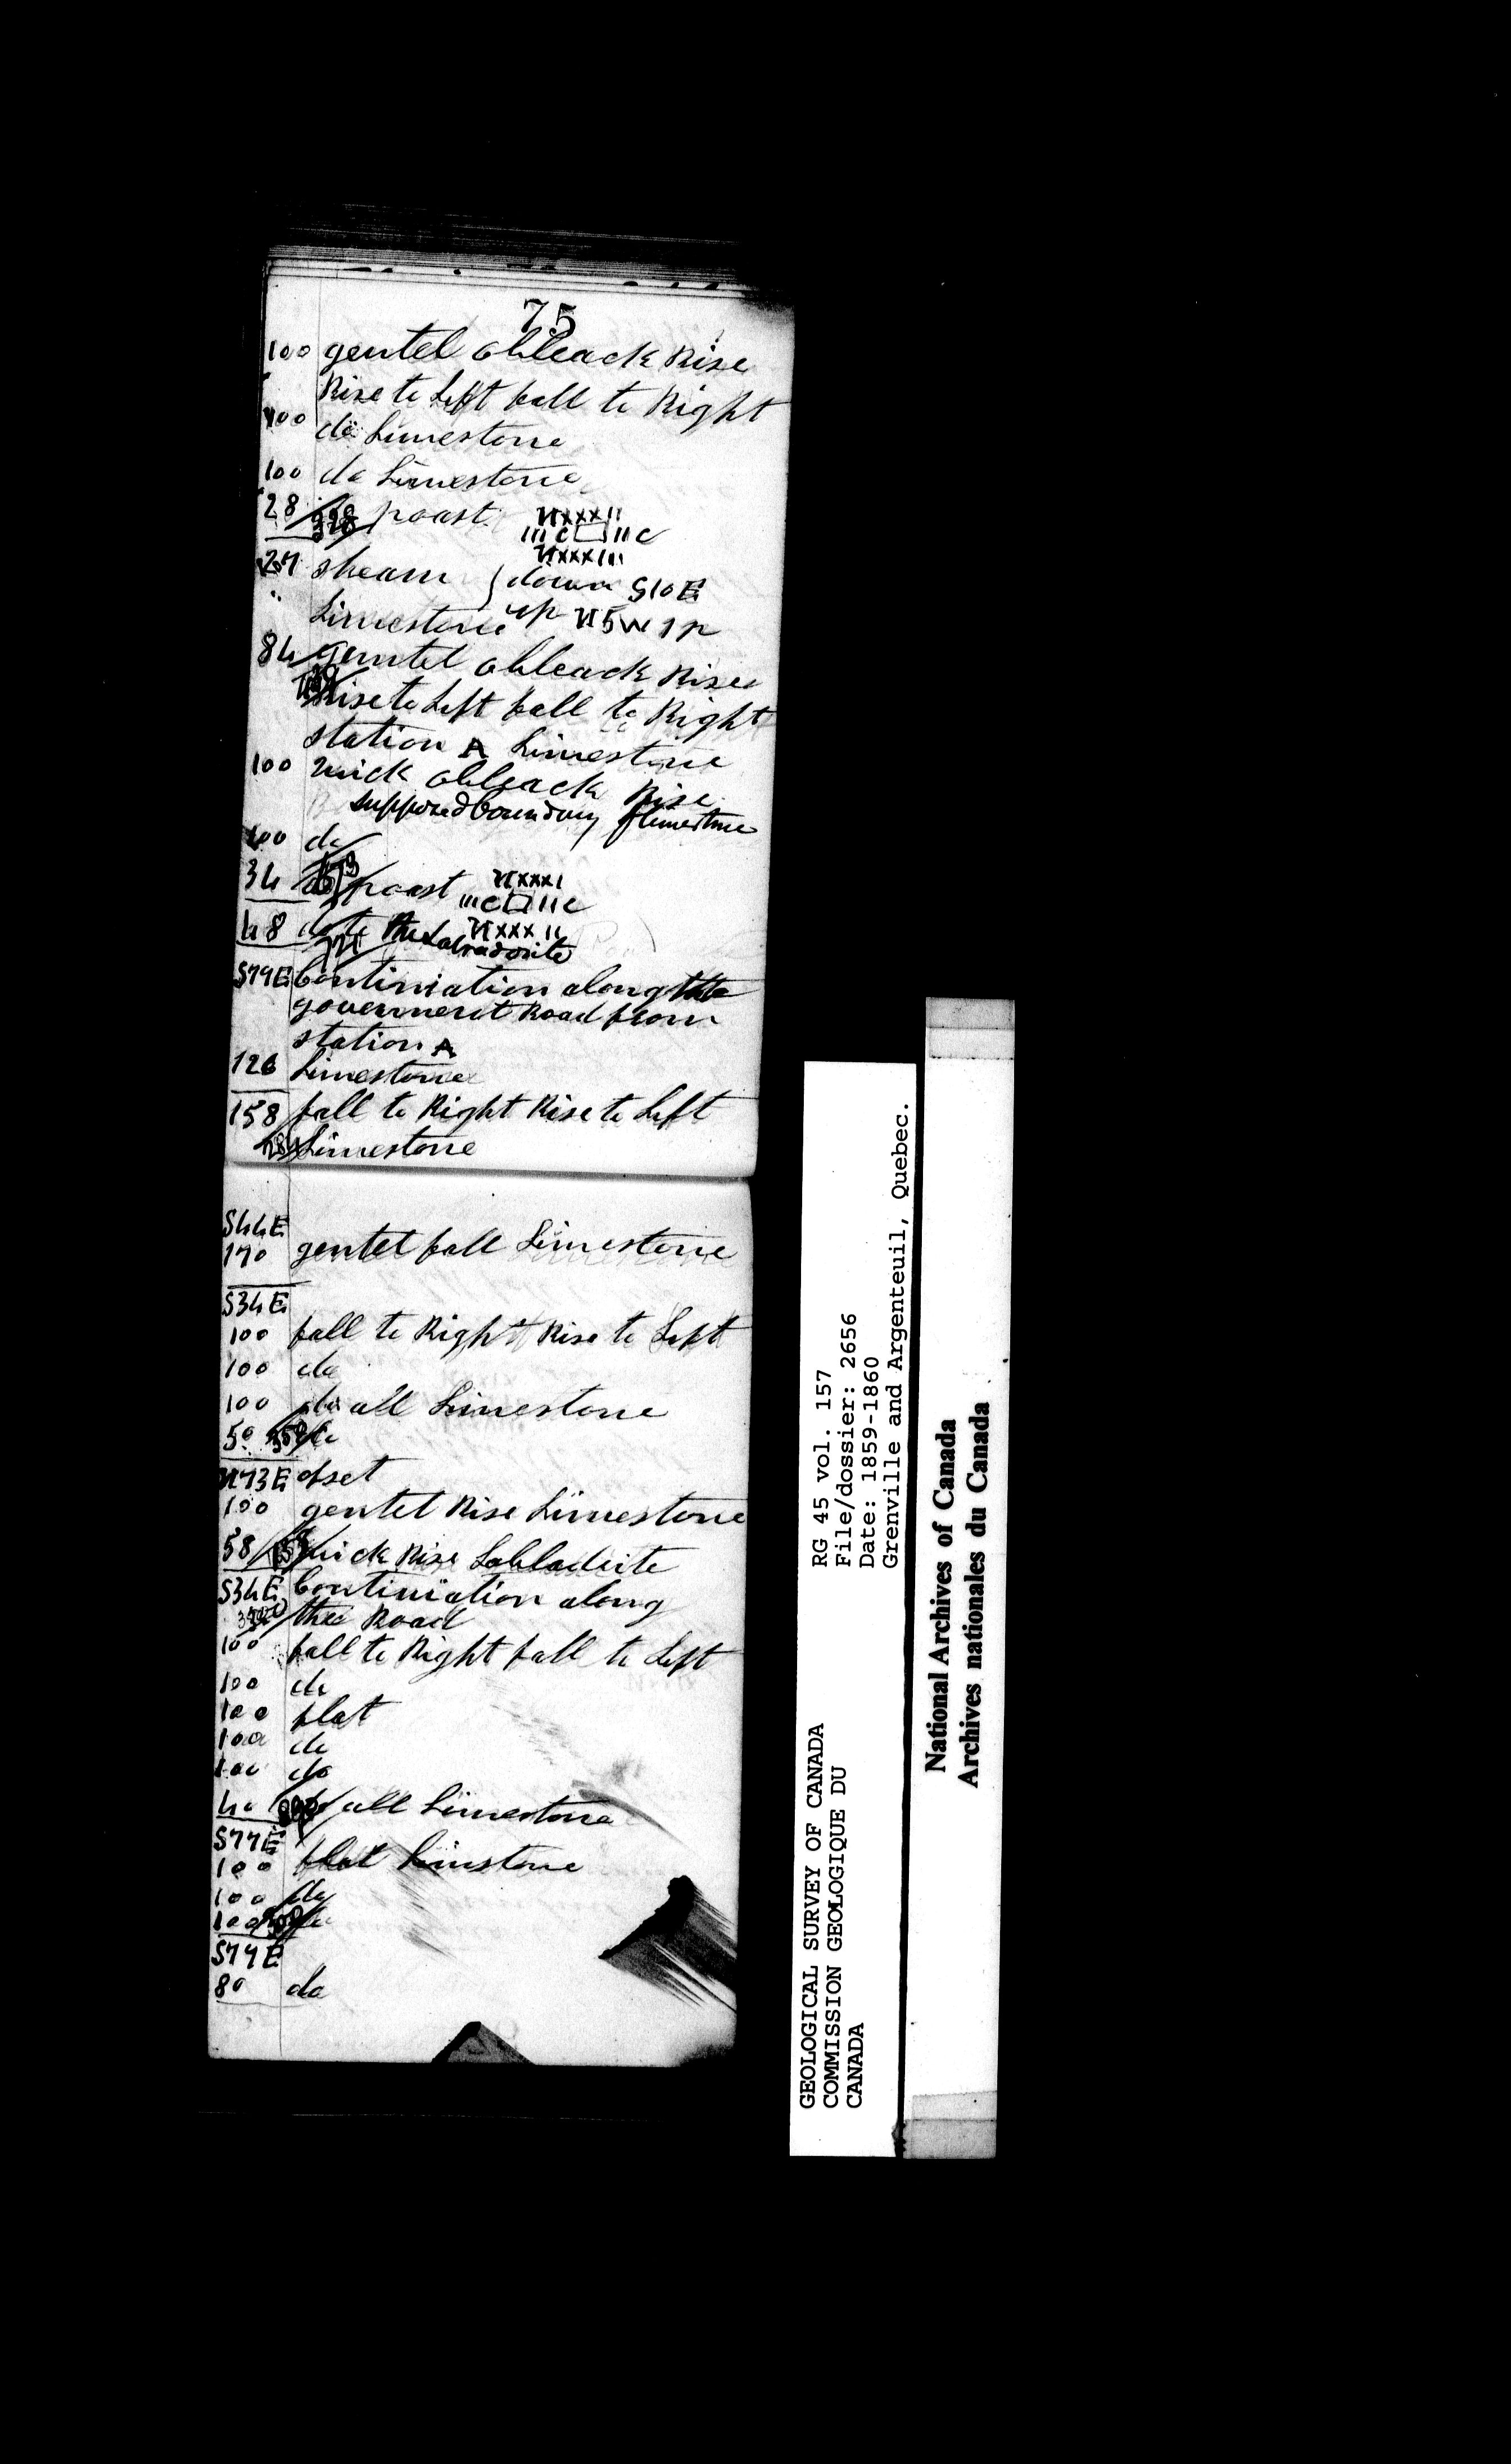 75
100 gentel obleack Rise
Rise to Left fall to Right
100 do Limestone
100 do Limestone
28 328 poast NXXXXII
IIIC IIC
NXXXIII
27 stream down S10E
Limestone up N5W 1p
84 gentel obleack Rise
Rise to Left fall to Right
station A Limestone
100 quick obleack Rise
supposed boundary of limestone
100 do
34 do poast NXXXI
IIIC IIC
48 do to the NXXXII
Labradorite
S79E Continiation along the
goverment Road from
station A
126 Limestone
158 fall to Right Rise to Left
284 Limestone
S44E
170 gentel fall Limestone
S34E
100 fall to Right Rise to Left
100 do
100 do all Limestone
50 350 do
N73E ofset
100 gentel Rise Limestone
58 158 quick Rise Labladeite
S34E Continiation along
the Road
100 fall to Right fall to Left
100 do
100 flat
100 do
100 do
40 do all Limestone
S77E
100 flat Limstone
100 do
100 300 do
S77E
80 do
GEOLOGICAL SURVEY OF CANADA
COMMISSION GEOLOGIQUE DU
CANADA
RG 45 vol. 157
File/dossier: 2656
Date: 1859-1860
Grenville and Argenteuil, Quebec.
National Archives of Canada
Archives nationales du Canada